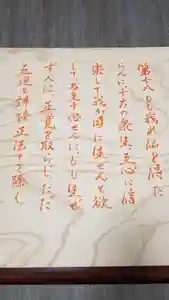 第十八 もし我れ仏を得た
らんに十方の衆生、至心に信
楽して我が国に生ぜんと欲
して乃至十念せんに、もし生ぜ
ずんば正覚を取らじ、ただ
五逆と誹謗正法を除く。